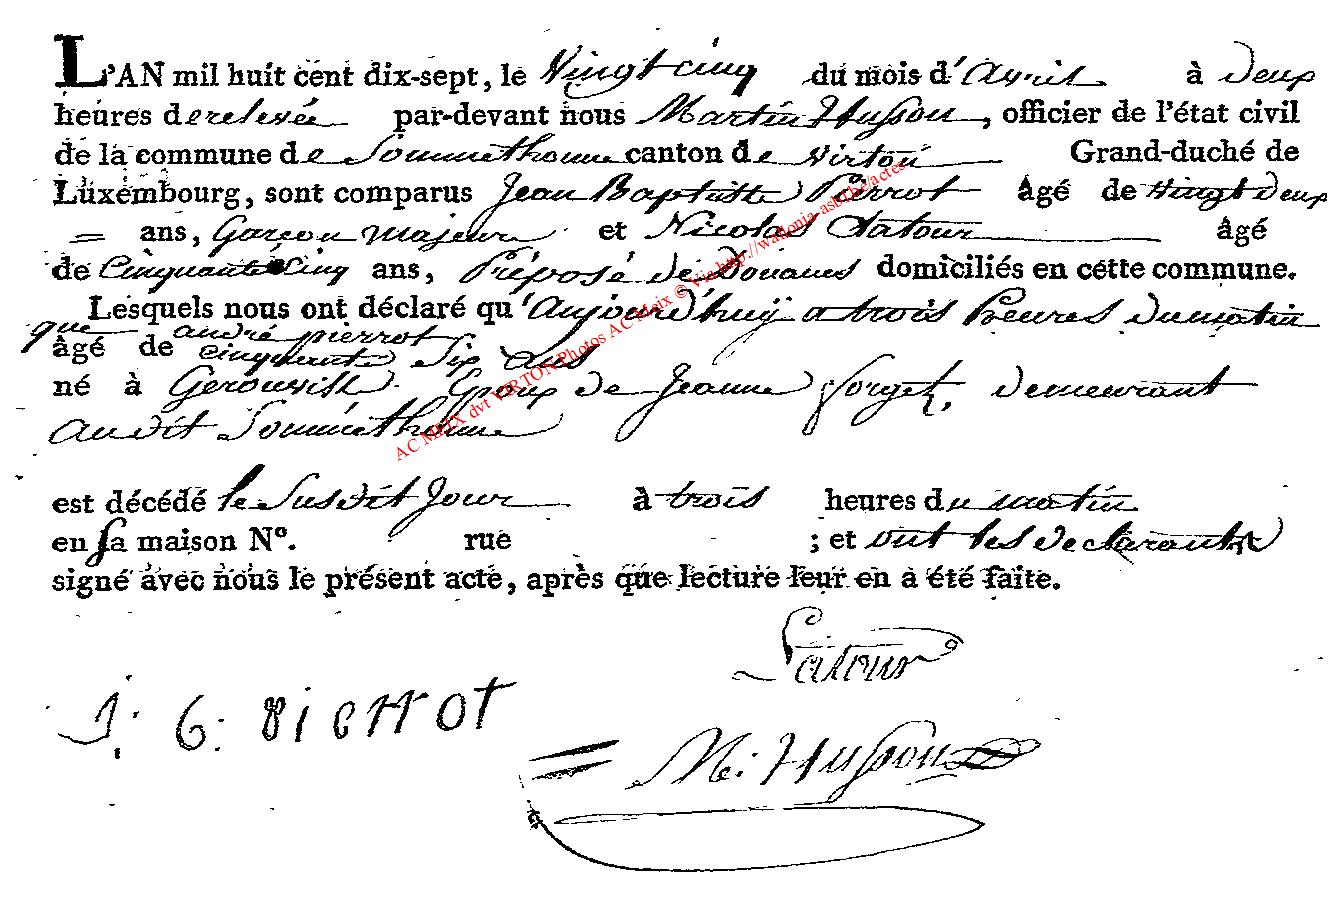 L'AN mil huit cent dix-sept, le Vingt cinq du mois d'Avril à deux
heures de relevée par-devant nous Martin Husson, officier de l'état civil
de la commune de Sommethonne canton de virton Grand-duché de
Luxembourg, sont comparus Jean Baptiste Pierrot âgé de vingt deux
= ans, Garçon majeur et Nicolas Latour âgé
de Cinquante Cinq ans, Préposé de Douanes domiciliés en cette commune.
Lesquels nous ont déclaré qu'aujourd'huy a trois heures du matin
que andré pierrot
âgé de cinquante Six ans
né à Gerouville Epoux de Jeanne forget, demeurant
audit Sommethonne
est décédé le Susdit Jour à trois heures du matin
en sa maison N°. rue ; et ont les declarants
signé avec nous le présent acte, après que lecture leur en a été faite.
Latour
J: B: Pierrot
M: Husson
AC Meix dvt VIRTON Photos AC Meix © Via http://wallonia-asbl.be/actes